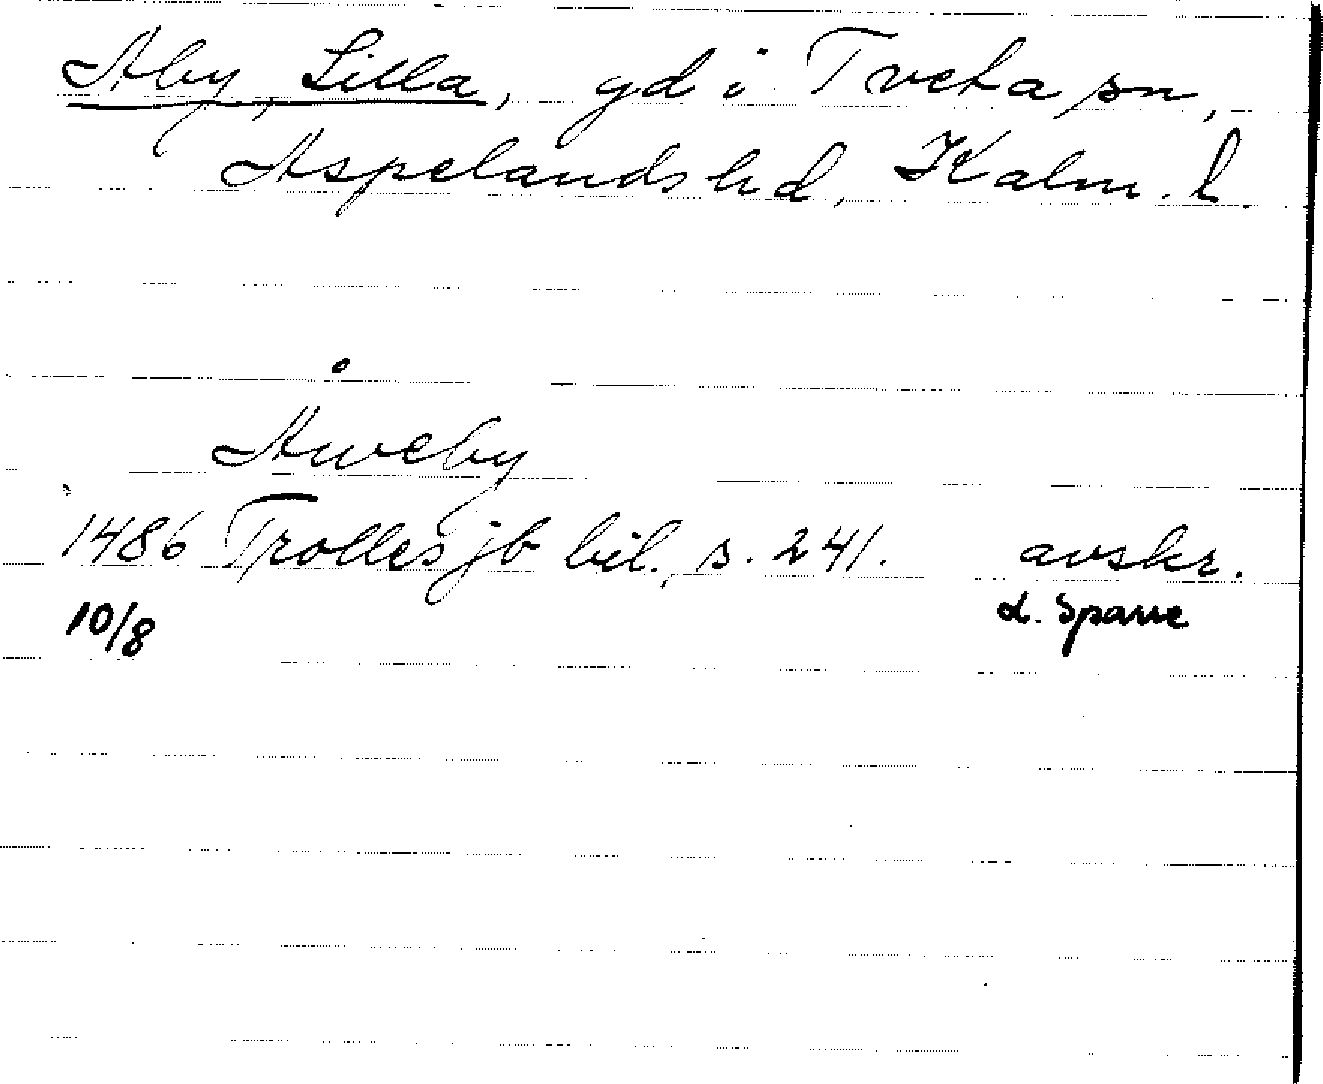 Åby, Lilla, gd i Tveta sn,
Aspelands hd, Kalm. l.
Åweby
1486 Trolles jb bil., s. 241. avskr.
10/8 d. Sparre